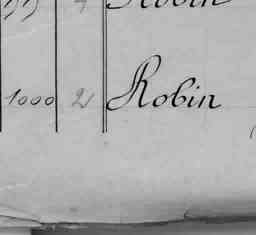 Robin
1000 2 Robin